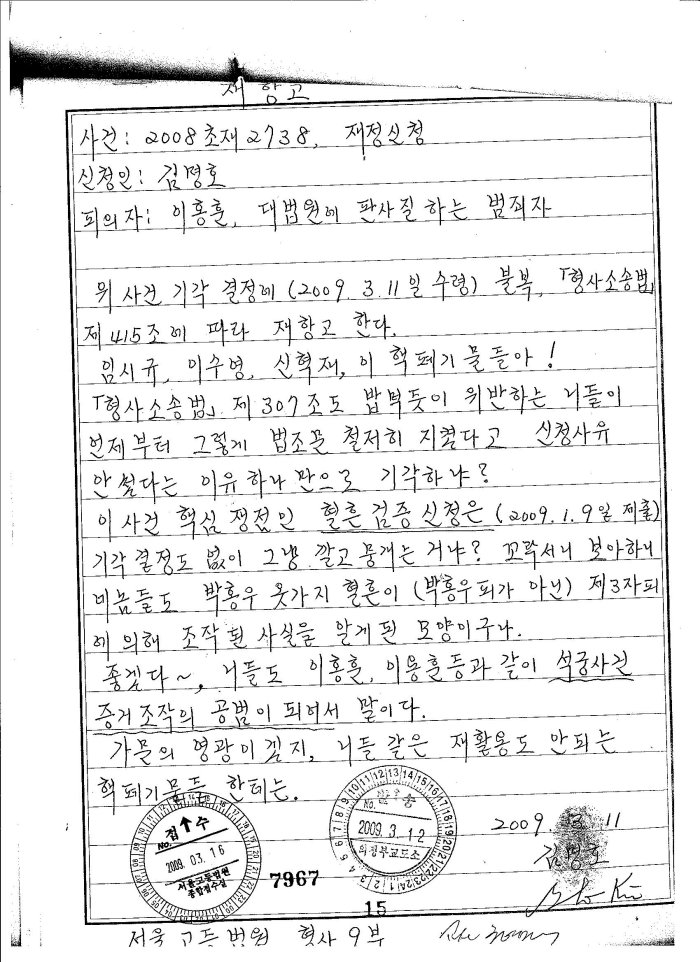 재항고
사건: 2008초재2738, 재정신청
신청인: 김명호
피의자: 이홍훈, 대법원에 판사질 하는 범죄자
위 사건 기각 결정에 (2009. 3. 11일 수령) 불복, 「형사소송법」
제415조에 따라 재항고 한다.
임시규, 이수영, 신혁재, 이 핵폐기물들아!
「형사소송법」 제307조도 밥먹듯이 위반하는 니들이
언제부터 그렇게 법조문 철저히 지켰다고 신청사유
안썼다는 이유 하나만으로 기각하냐?
이 사건 핵심 쟁점인 혈흔 검증 신청은 (2009. 1. 9일 제출)
기각 결정도 없이 그냥 깔고 뭉개는 거냐? 꼬락서니 보아하니
네놈들도 박홍우 옷가지 혈흔이 (박홍우피가 아닌) 제3자피
에 의해 조작된 사실을 알게된 모양이구나.
좋겠다~, 니들도 이홍훈, 이용훈등과 같이 석궁사건
증거조작의 공범이 되어서 말이다.
가문의 영광이겠지, 니들 같은 재활용도 안되는
핵폐기물들 한테는.
접수
No.
2009. 03. 16
서울고등법원
종합접수실
No.
2009. 3. 12
의정부교도소
2009. 3. 11
김명호
7967
15
서울고등법원 형사9부